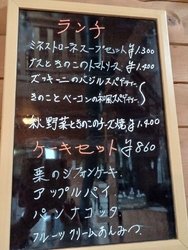 ランチ
ミネストローネスープセット ¥1,300
ナスときのこのトマトソース ¥1,400
ズッキーニのバジルスパゲティー
きのことベーコンの和風スパゲティー
秋野菜ときのこのチーズ焼 ¥1,400
ケーキセット ¥860
栗のシフォンケーキ
アップルパイ
パンナコッタ
フルーツクリームあんみつ